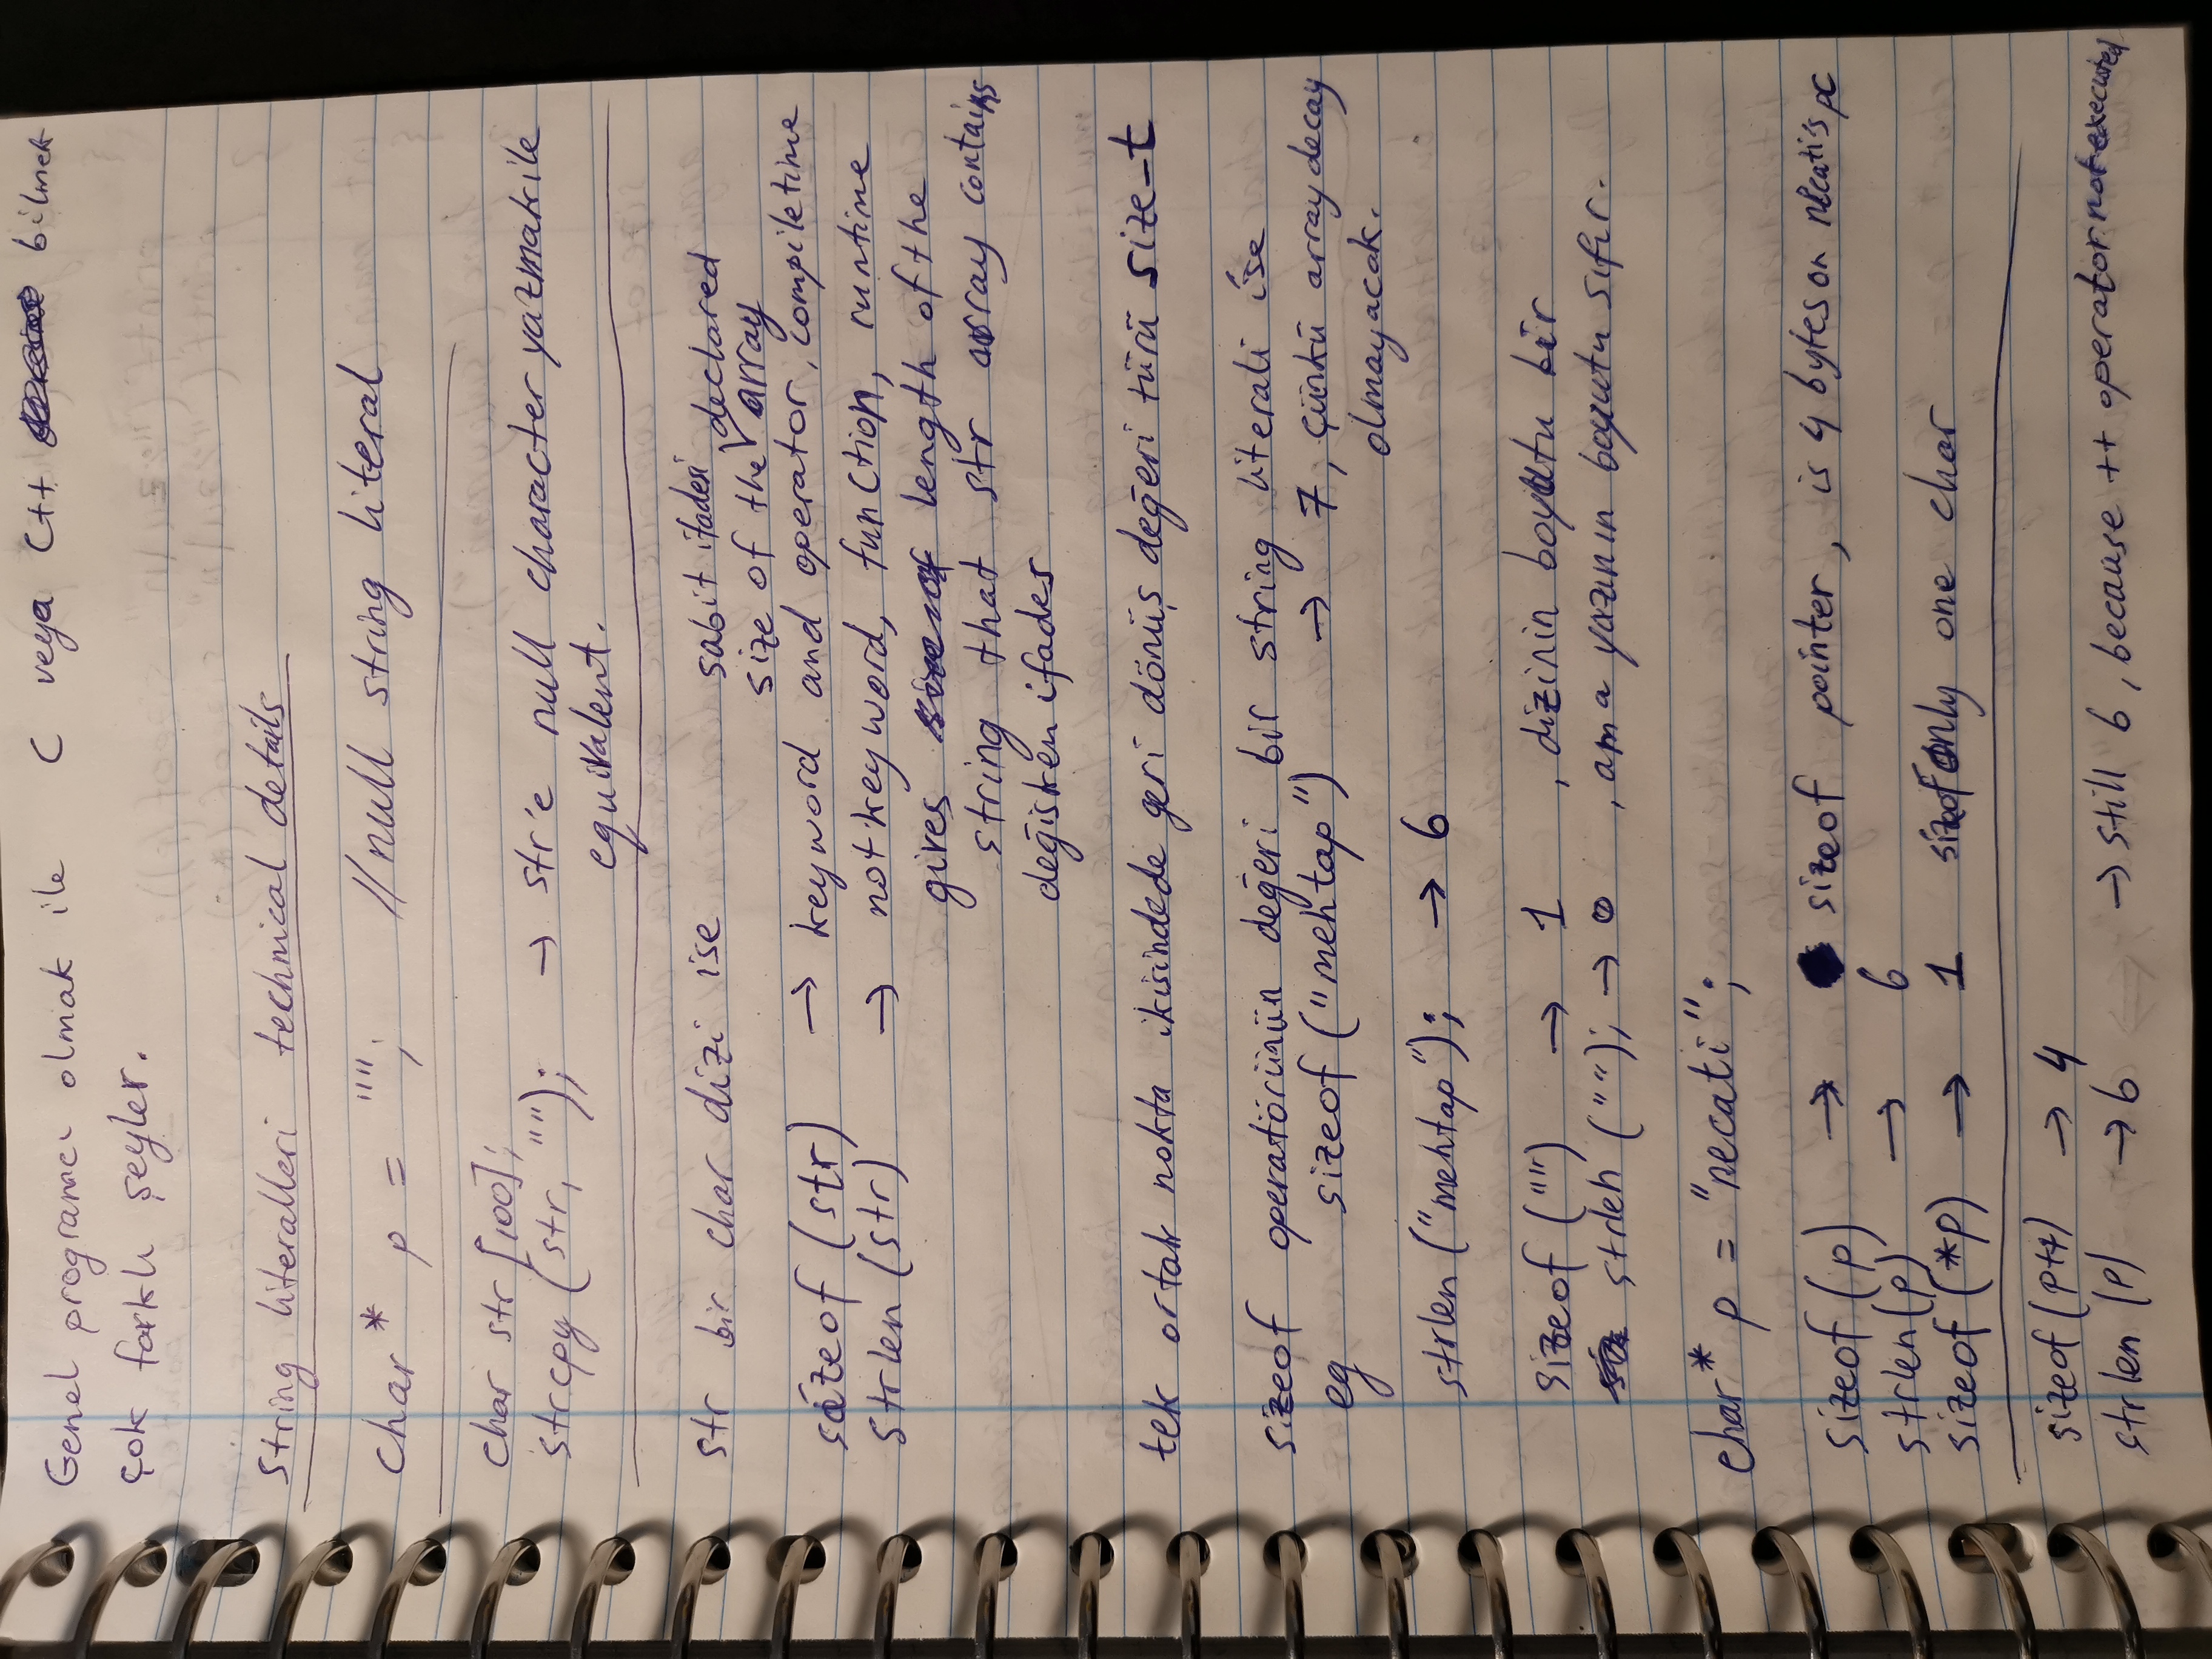 Genel programcı olmak ile C veya C++ bilmek
çok farklı şeyler.
String literalleri technical details
char* p = ""; //null string literal
char str [100];
strcpy (str, ""); → str'e null character yazmak ile
equivalent.
str bir char dizi ise sabit ifadesi declared
size of the array
sizeof (str) → keyword and operator, compiletime
strlen (str) → not keyword, function, runtime
gives length of the
string that str array contains
değişken ifades
tek ortak nokta ikisindede geri dönüş değeri türü size_t
sizeof operatörünün değeri bir string literali ise
eg sizeof ("mehtap") → 7, çünkü array decay
olmayacak.
strlen ("mehtap"); → 6
sizeof ("") → 1 , dizinin boyutu bir
strlen (""); → 0 , ama yazının boyutu sıfır.
char* p = "necati";
sizeof (p) → sizeof pointer, is 4 bytes on necati's pc
strlen (p) → 6
sizeof (*p) → 1 sizeof only one char
sizeof (p++) → 4
strlen (p) → 6 → still 6, because ++ operator not executed